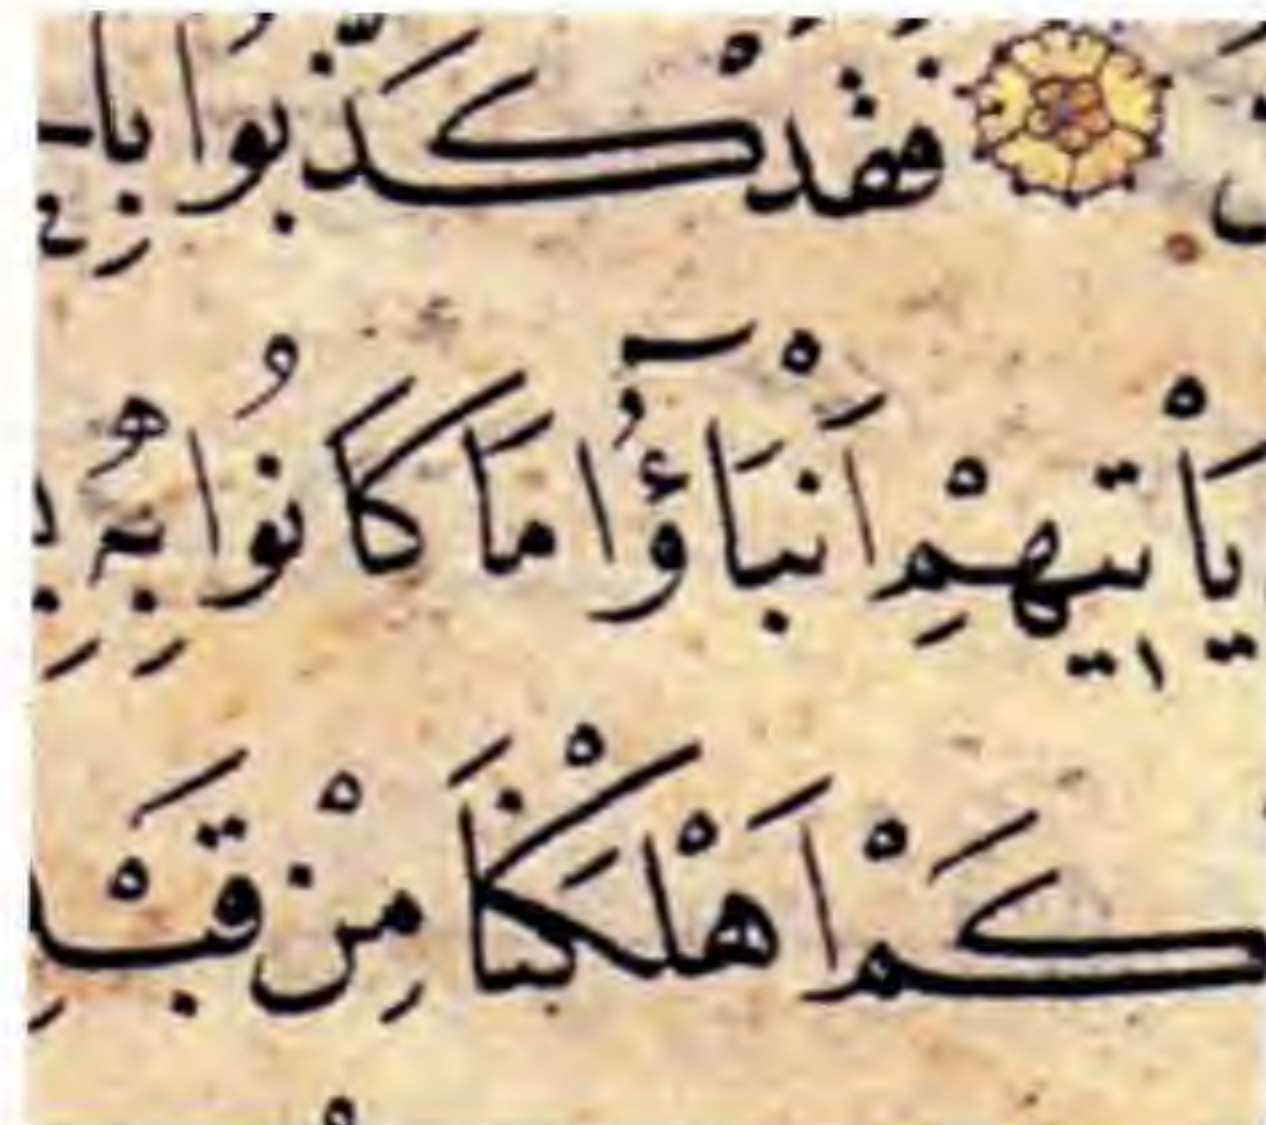 فَقَدْ كَذَّبُوا بِا
يَأْتِيهِمْ اَنْبَآؤُا مَا كَانُوا بِهِ
كَمْ اَهْلَكْنَا مِنْ قَبْلِ